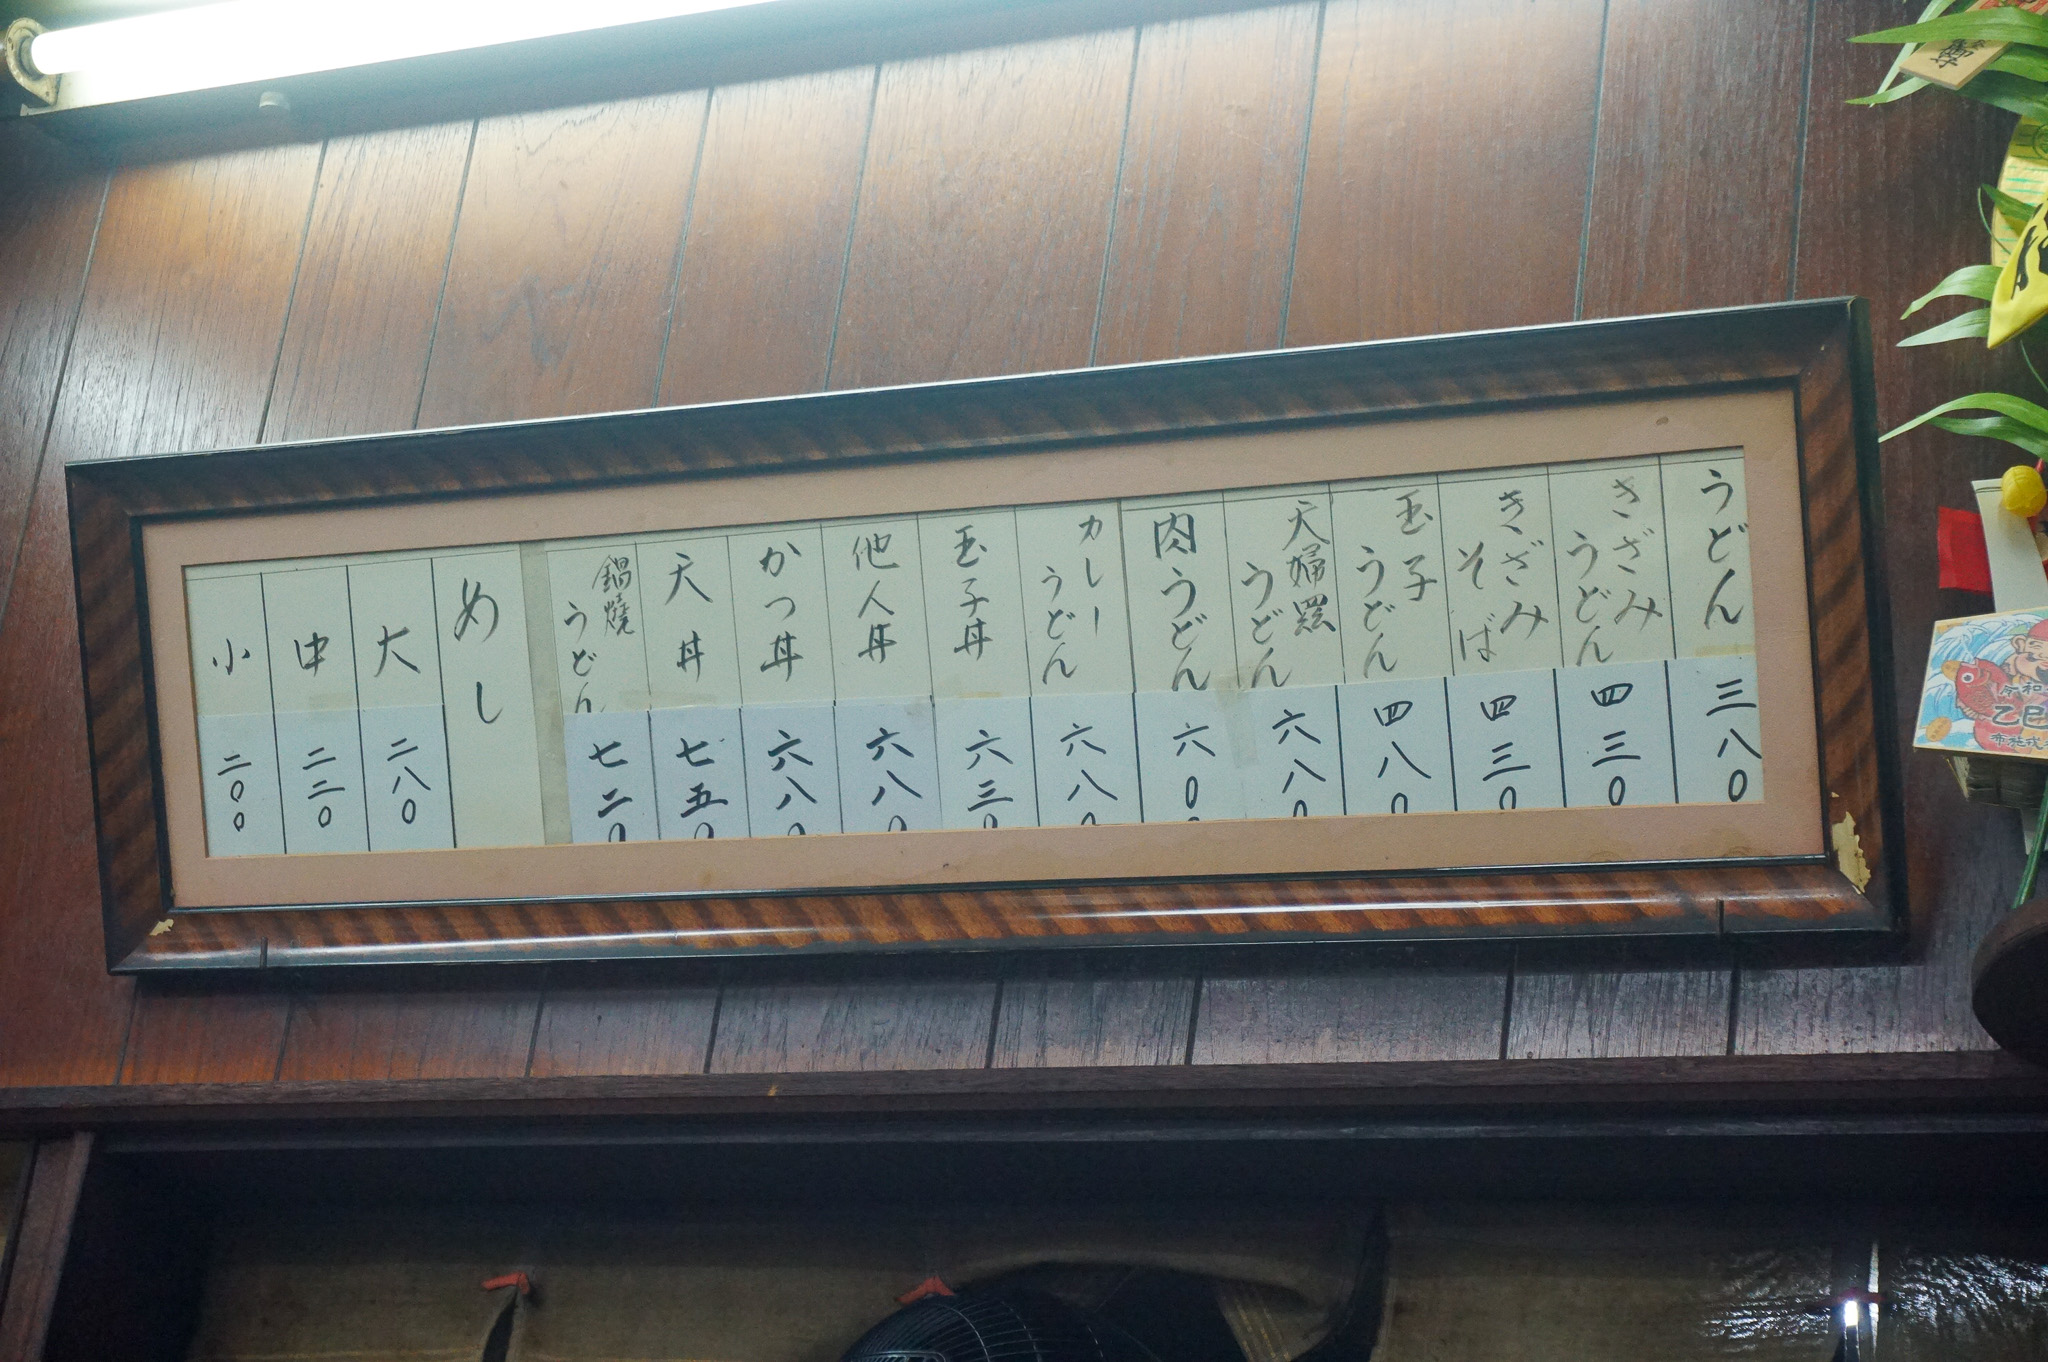 うどん 三八〇
きざみうどん 四三〇
きざみそば 四三〇
玉子うどん 四八〇
天婦羅うどん 六八〇
肉うどん 六〇〇
カレーうどん 六八〇
玉子丼 六三〇
他人丼 六八〇
かつ丼 六八〇
天丼 七五〇
鍋燒うどん 七二〇
めし
大 二八〇
中 二三〇
小 二〇〇
令和
乙巳